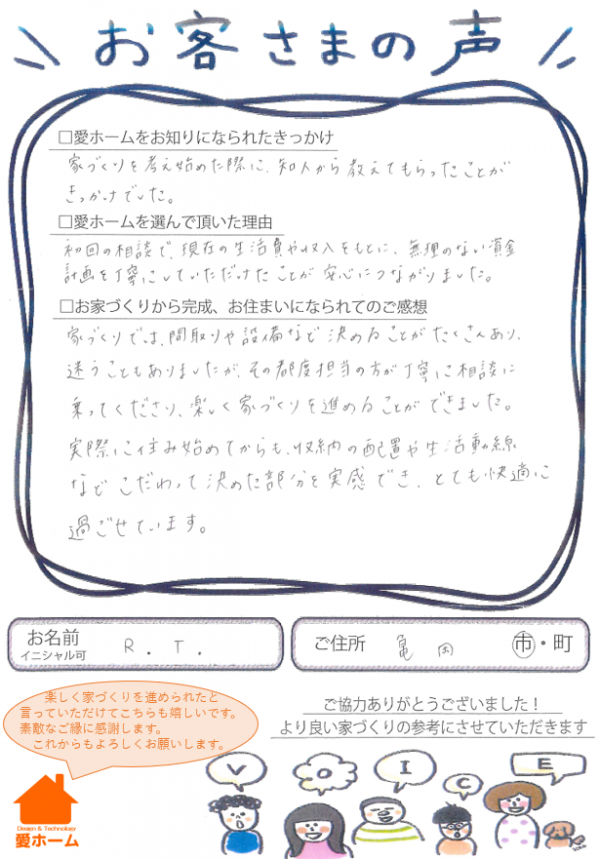 お客さまの声
□愛ホームをお知りになられたきっかけ
家づくりを考え始めた際に、知人から教えてもらったことが
きっかけでした。
□愛ホームを選んで頂いた理由
初回の相談で、現在の生活費や収入をもとに、無理のない資金
計画を丁寧にしていただけたことが安心につながりました。
□お家づくりから完成、お住まいになられてのご感想
家づくりでは、間取りや設備など決めることがたくさんあり、
迷うこともありましたが、その都度担当の方が丁寧に相談に
乗ってくださり、楽しく家づくりを進めることができました。
実際に住み始めてからも、収納の配置や生活動線
など こだわって決めた部分を実感でき、とても快適に
過ごせています。
お名前
イニシャル可
R.T.
ご住所 亀岡 市・町
楽しく家づくりを進められたと
言っていただけてこちらも嬉しいです。
素敵なご縁に感謝します。
これからもよろしくお願いします。
ご協力ありがとうございました！
より良い家づくりの参考にさせていただきます
V O I C E
Design & Technology
愛ホーム